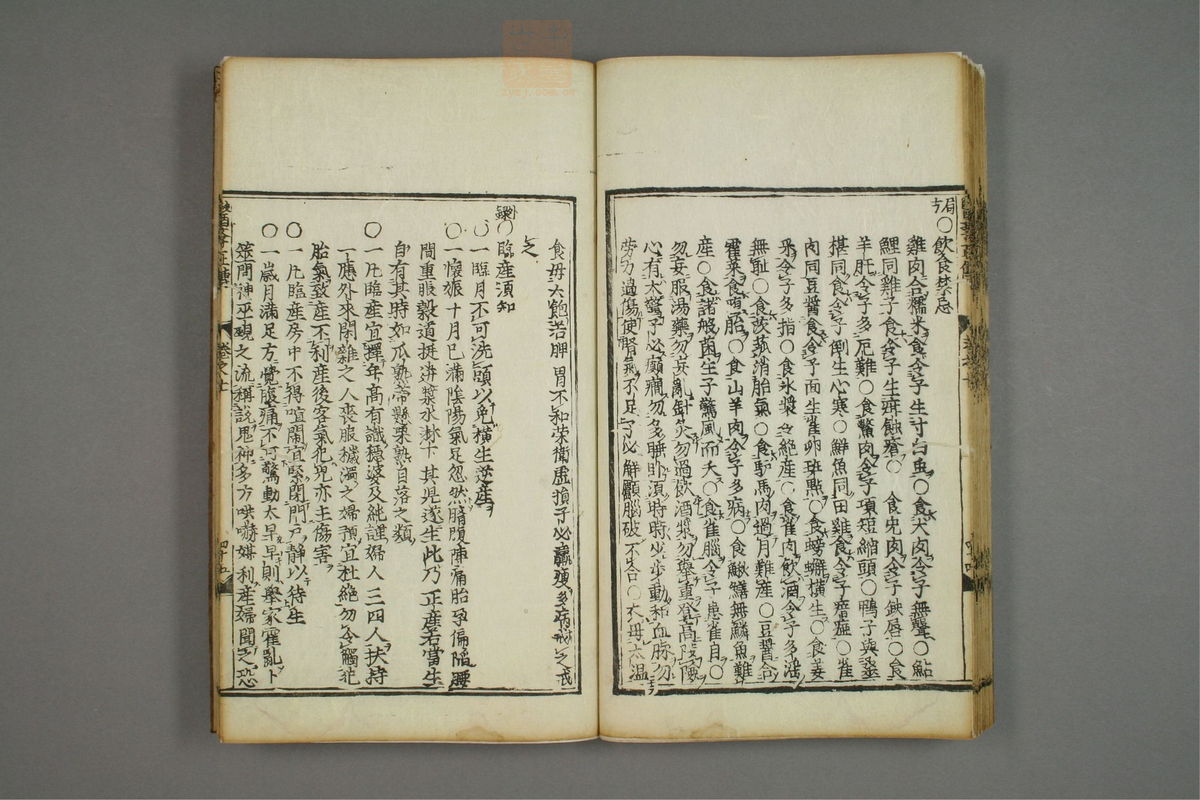 局方
〇飲食禁忌
雞肉合糯米食令子生寸白虫〇食犬肉令子無聲〇鮎
鯉同雞子食令子生疳蝕瘡〇食兎肉令子缺唇〇食
羊肝令子多厄難〇食鱉肉令子項短縮頭〇鴨子與桑
椹同食令子倒生心寒〇鮮魚同田雞食令子瘖瘂〇雀
肉同豆醬食令子面生雀卵斑點〇食螃蠏橫生〇食姜
令子多指〇食氷漿令絶産〇食雀肉飲酒令子多淫
無耻〇食茨菰消胎氣〇食馿馬肉過月難産〇豆醤合
藿菜食堕胎〇食山羊肉令子多病〇食鰍鱔無鱗魚難
産〇食諸般菌生子驚風而夭〇食雀腦令子患雀目〇
勿妄服湯藥勿妄亂針灸勿過飲酒漿勿舉重登高陟險
心有大驚子必癲癇勿多睡卧須時時歩動和血脉勿
勞力過傷使腎氣不足子必解顱腦破不合〇大母太温
食毋太飽若脾胃不和榮衛虛損子必羸瘦多病戒之戒
之
〇臨産須知
〇一臨月不可洗頭以免橫生逆産
〇一懷娠十月已滿陰陽氣足忽然腰腹陣痛胎孕偏陷腰
間重眼穀道挺迸漿水淋下其児遂生此乃正産若當生
自有其時如瓜熟帶懸栗熟自落之類
〇一凡臨産宜擇年高有識穩婆及純謹婦人三四人扶持
一應外來閑雜之人喪服穢濁之婦預宜杜絶勿令觸犯
胎氣致産不利産後客氣犯児亦主傷害
〇一凡臨産房中不得喧鬧宜緊閉門戸静以待生
〇一歳月滿足方覺腹痛不可驚動太早早則舉家霍亂卜
筮問神巫覡之流稱說鬼神多方哄嚇媒利産婦聞之恐
卷之